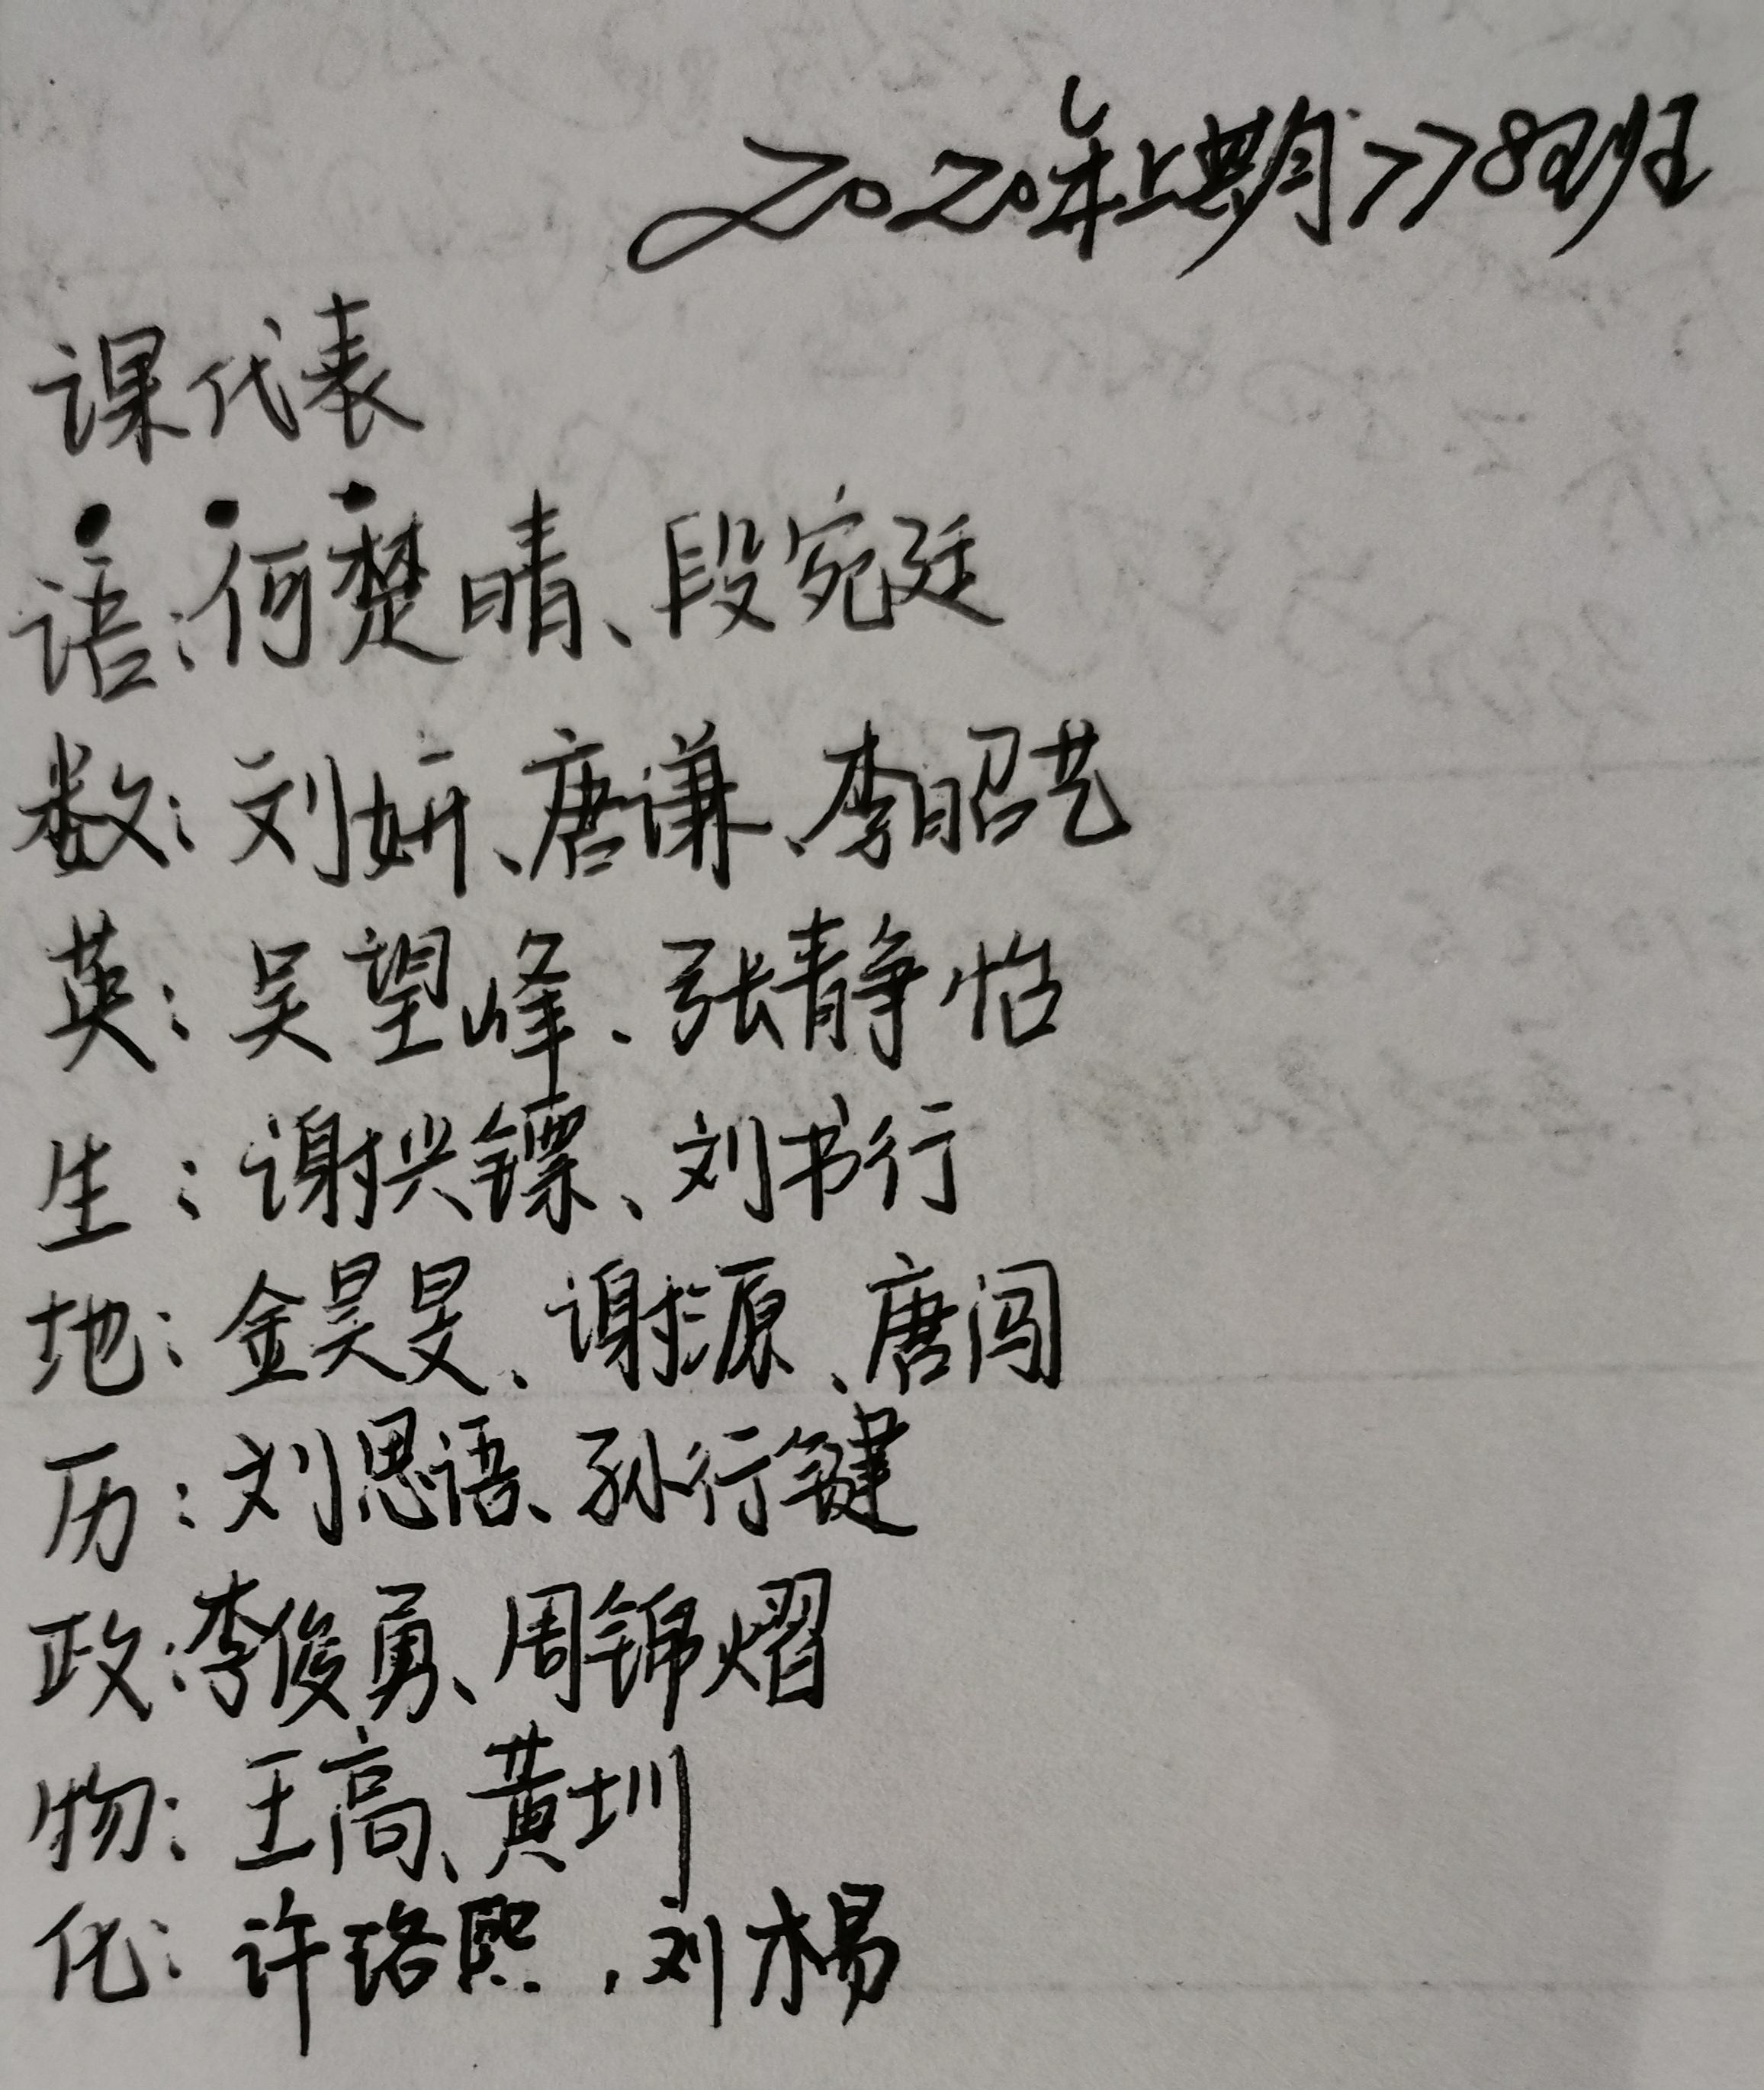 2020年上期778班
课代表
语:何楚晴、段宛廷
数:刘妍、唐谦、李昭艺
英:吴望峰、张静怡
生:谢兴镖、刘书行
地:金昊旻、谢源、唐闯
历:刘思语、孙行键
政:李俊勇、周锦熠
物:王高、黄圳
化:许珞熙,刘杨